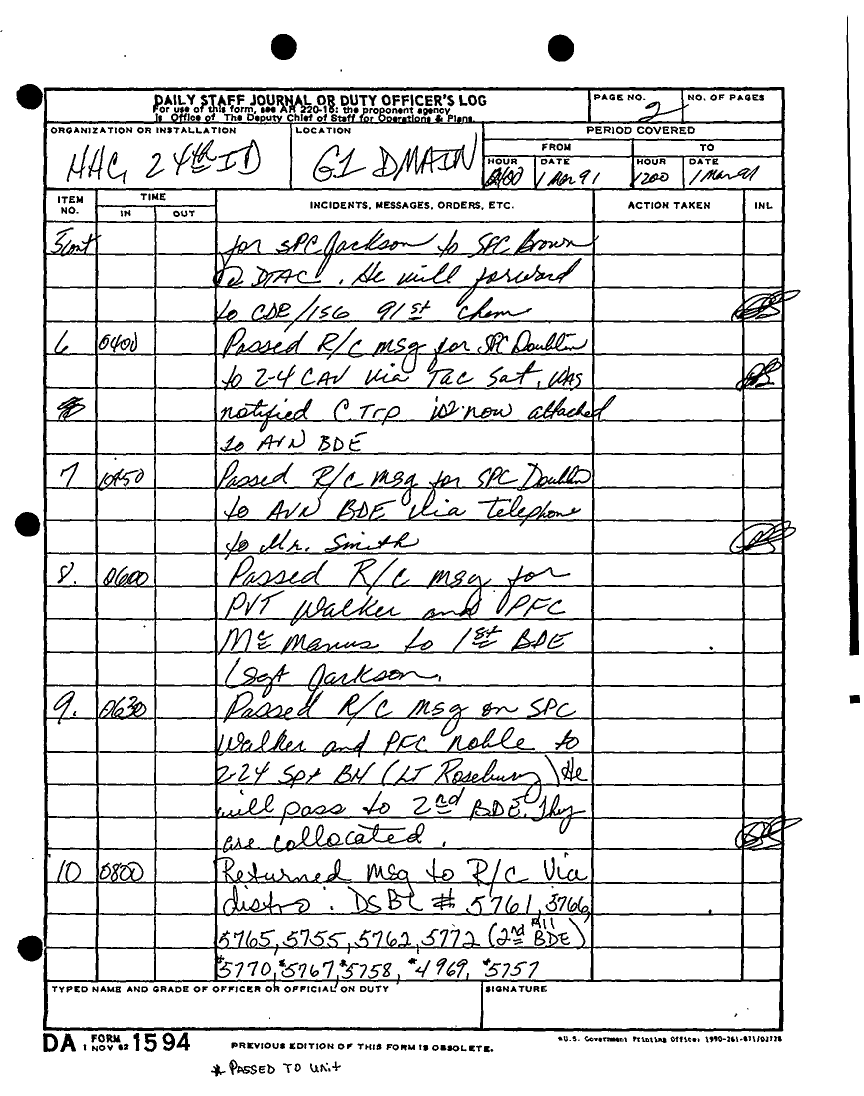 DAILY STAFF JOURNAL OR DUTY OFFICER'S LOG
For use of this form, see AR 220-15: the proponent agency
is Office of The Deputy Chief of Staff for Operations & Plans.
PAGE NO. 2
NO. OF PAGES
ORGANIZATION OR INSTALLATION
HHC, 24th ID
LOCATION
G1 DMAIN
PERIOD COVERED
FROM
TO
HOUR
DATE
1 Mar 91
HOUR 1200
DATE
1 Mar 91
ITEM NO.
TIME
IN
OUT
INCIDENTS, MESSAGES, ORDERS, ETC.
ACTION TAKEN
INL
5cont for SPC Jackson to SPC Brown
@ DTAC. He will forward
to CDE/156 91st Chem
6 0400 Passed R/C msg for SPC Doublin
to 2-4 CAV via Tac Sat, was
notified C Trp is now attached
to AVN BDE
7 0450 Passed R/C msg for SPC Doublin
to AVN BDE via telephone
to Mr. Smith
8. 0600 Passed R/C msg for
PVT Walker and PFC
McManus to 1st BDE
(Sgt Jackson.
9. 0630 Passed R/C msg on SPC
Walker and PFC Noble to
2-24 Spt BN (LT Rosebury) He
will pass to 2nd BDE. They
are collocated.
10 0800 Returned msg to R/C Via
distro. DSBL # 5761, 5766,
5765, 5755, 5762, 5772 (2nd BDE)
*5770, *5767, *5758, *4969, *5757
TYPED NAME AND GRADE OF OFFICER OR OFFICIAL ON DUTY
SIGNATURE
DA FORM 1 NOV 62 1594
PREVIOUS EDITION OF THIS FORM IS OBSOLETE.
*U.S. Government Printing Office: 1990-261-871/02728
* PASSED TO UNIT